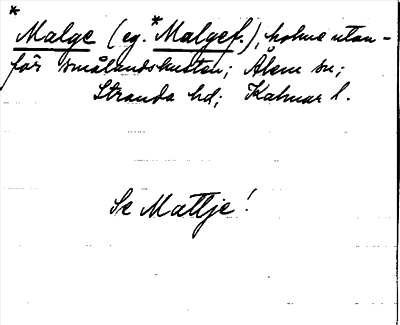 *
Malge (eg. *Malgef.), holme utan-
för smålandskusten; Ålem sn;
Stranda hd; Kalmar l.
Se Mattje!